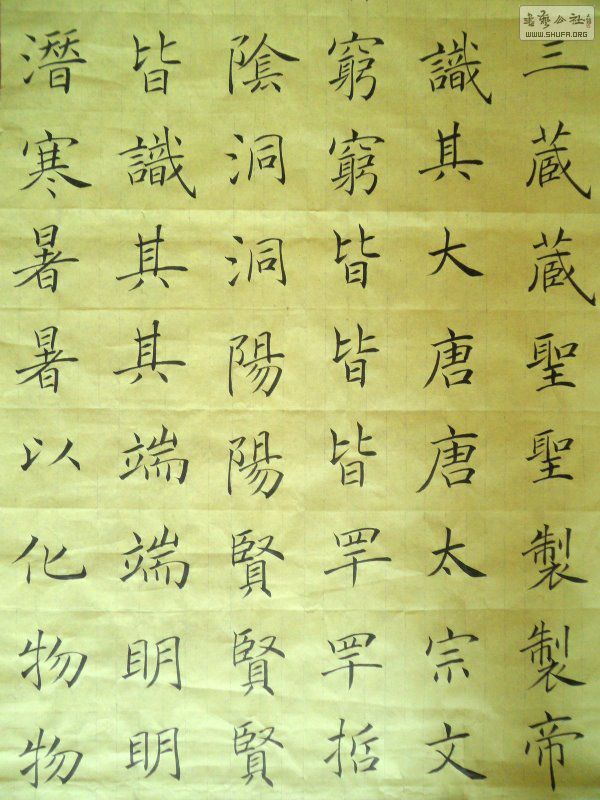 三蔵蔵聖聖製製帝
識其大唐唐太宗文
窮窮皆皆皆罕罕哲
陰洞洞陽陽賢賢賢
皆識其其端端明明
潛寒暑暑以化物物
書藝公社
WWW.SHUFA.ORG